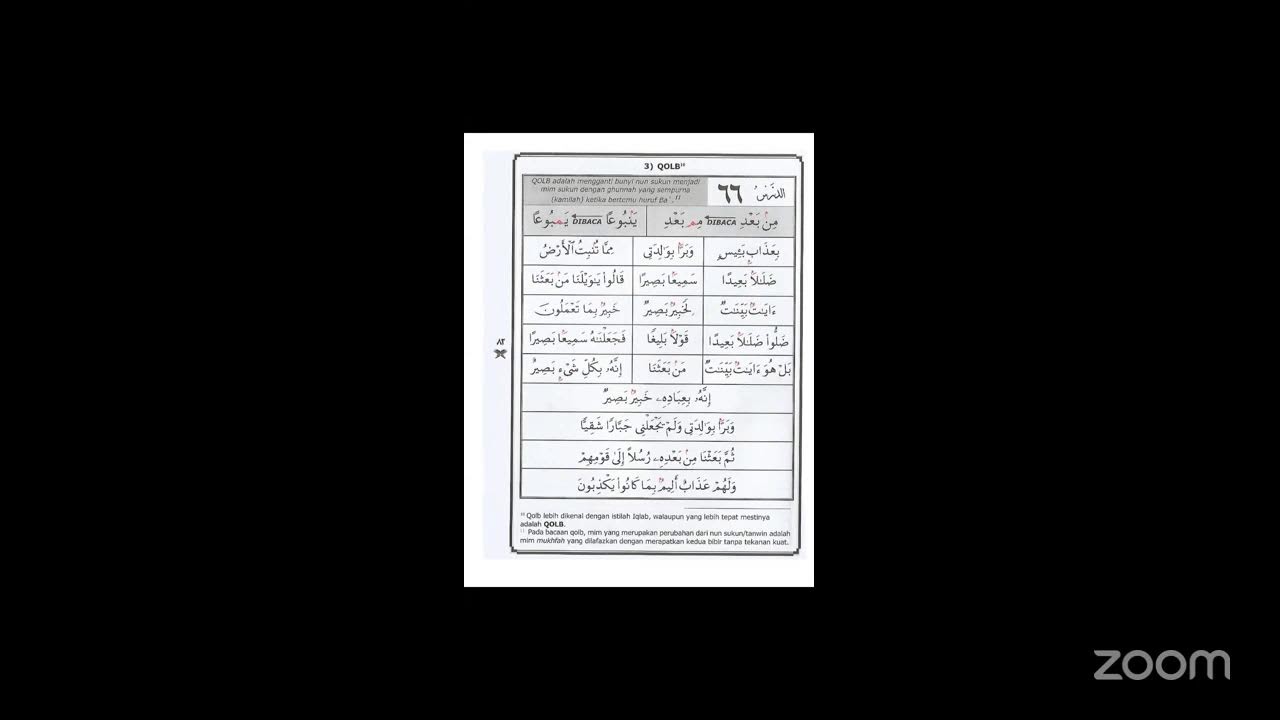 3) QOLB¹⁰
QOLB adalah mengganti bunyi nun sukun menjadi
mim sukun dengan ghunnah yang sempurna
(kamilah) ketika bertemu huruf Ba'.¹¹
الدَّرْسُ ٦٦
مِنۢ بَعْدِ DIBACA مِم بَعْدِ
يَنۢبُوعًا DIBACA يَمبُوعًا
بِعَذَابِۭ بَـِٔيسٍ
وَبَرَّۢا بِوَٰلِدَتِى
مِمَّا تُنۢبِتُ ٱلْأَرْضُ
ضَلَـٰلَۢا بَعِيدًا
سَمِيعَۢا بَصِيرًا
قَالُوا۟ يَـٰوَيْلَنَا مَنۢ بَعَثَنَا
ءَايَـٰتُۢ بَيِّنَـٰتٌ
لَخَبِيرُۢ بَصِيرٌ
خَبِيرُۢ بِمَا تَعْمَلُونَ
ضَلُّوا۟ ضَلَـٰلَۢا بَعِيدًا
قَوْلَۢا بَلِيغًا
فَجَعَلْنَـٰهُ سَمِيعَۢا بَصِيرًا
بَلْ هُوَ ءَايَـٰتُۢ بَيِّنَـٰتٌ
مَنۢ بَعَثَنَا
إِنَّهُۥ بِكُلِّ شَىْءِۭ بَصِيرٌ
إِنَّهُۥ بِعِبَادِهِۦ خَبِيرُۢ بَصِيرٌ
وَبَرَّۢا بِوَٰلِدَتِى وَلَمْ يَجْعَلْنِى جَبَّارًا شَقِيًّا
ثُمَّ بَعَثْنَا مِنۢ بَعْدِهِۦ رُسُلًا إِلَىٰ قَوْمِهِمْ
وَلَهُمْ عَذَابٌ أَلِيمُۢ بِمَا كَانُوا۟ يَكْذِبُونَ
٨٢
¹⁰ Qolb lebih dikenal dengan istilah Iqlab, walaupun yang lebih tepat mestinya
adalah QOLB.
¹¹ Pada bacaan qolb, mim yang merupakan perubahan dari nun sukun/tanwin adalah
mim mukhfah yang dilafazkan dengan merapatkan kedua bibir tanpa tekanan kuat.
zoom